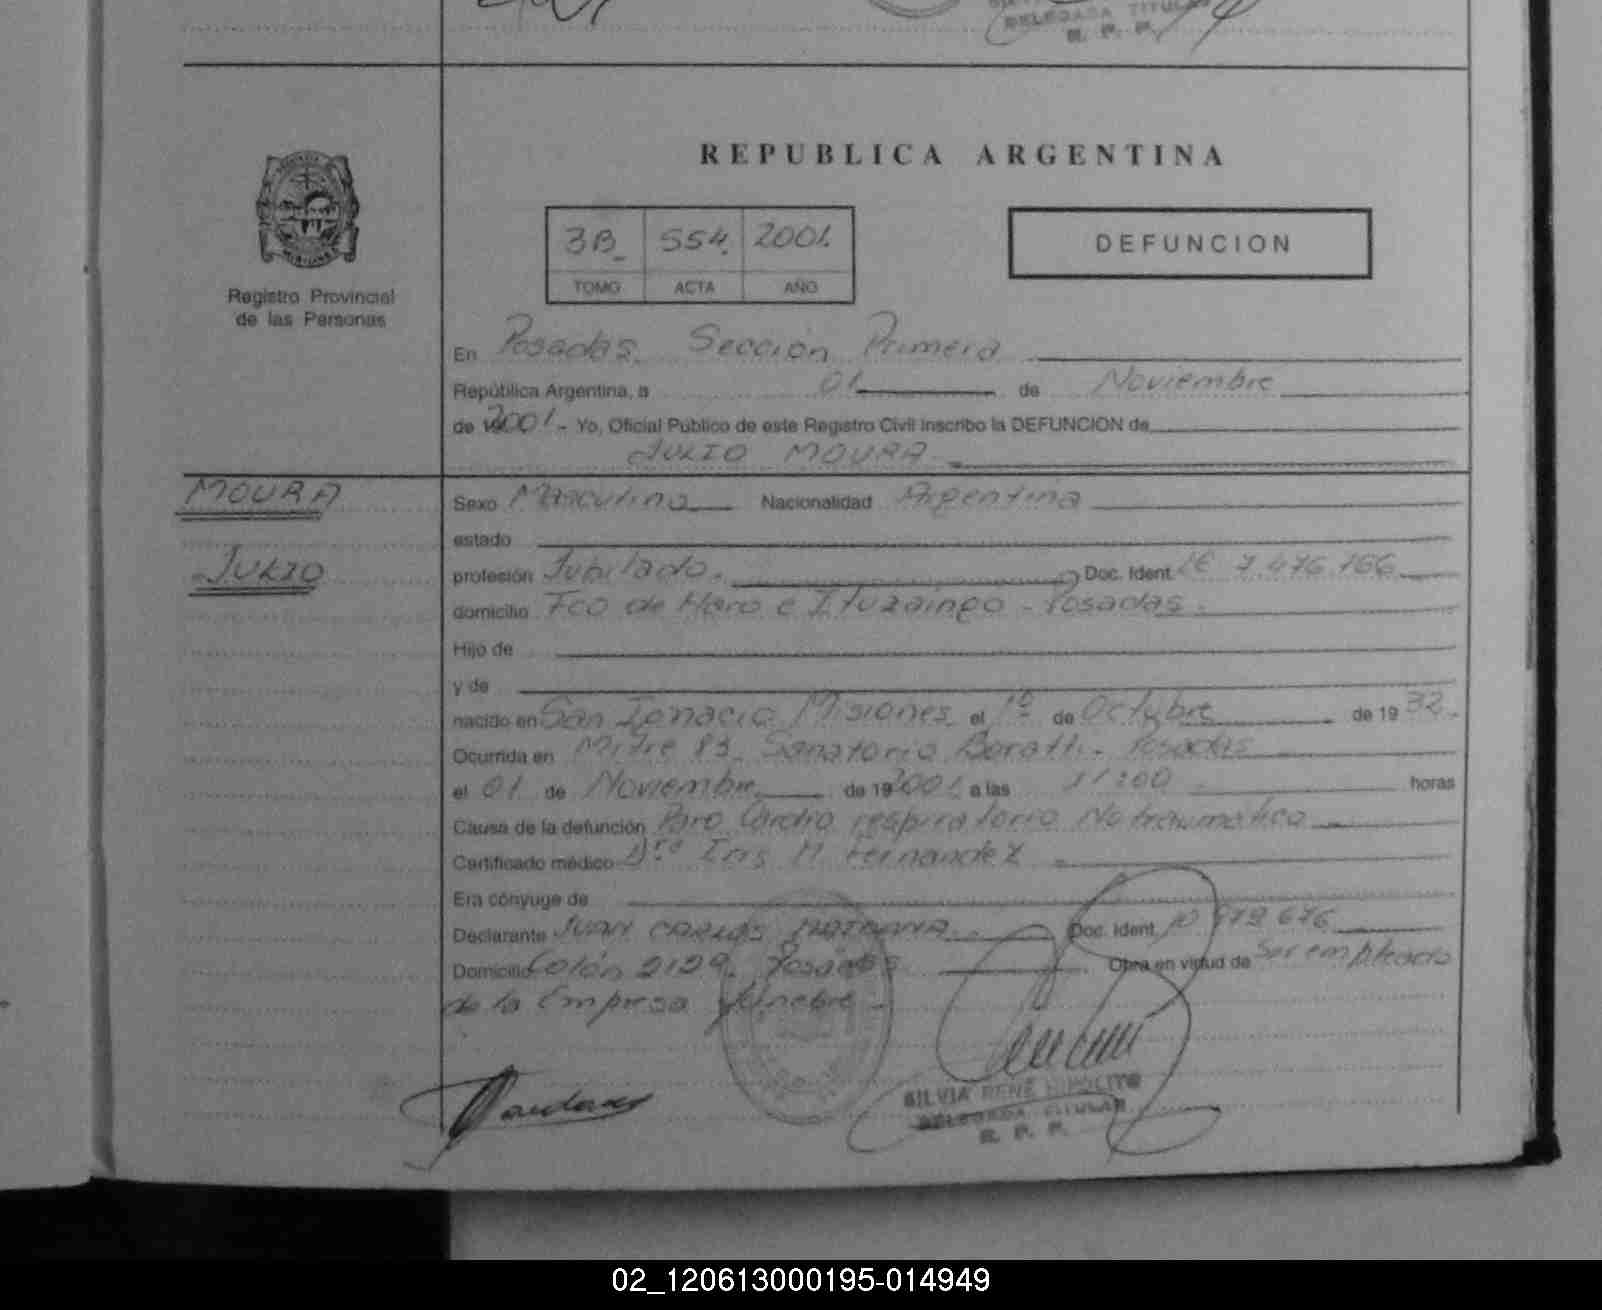 DELEGADA TITULAR
R. P. P.
REPUBLICA ARGENTINA
3B 554 2001
TOMO ACTA AÑO
DEFUNCION
Registro Provincial
de las Personas
En Posadas. Sección Primera
República Argentina, a 01 de Noviembre
de 19 2001 - Yo, Oficial Público de este Registro Civil inscribo la DEFUNCION de
JULIO MOURA
MOURA
JULIO
Sexo Masculino Nacionalidad Argentina
estado
profesión Jubilado. Doc. Ident. LE 7.476.166
domicilio Fco de Haro e Ituzaingo - Posadas.
Hijo de
y de
nacido en San Ignacio Misiones el 1º de Octubre de 19 32.
Ocurrida en Mitre 83 Sanatorio Boratti - Posadas
el 01 de Noviembre de 19 2001 a las 11:00 horas
Causa de la defunción Paro Cardio respiratorio No traumatico
Certificado médico Dra Iris M. Fernandez
Era cónyuge de
Declarante JUAN CARLOS Doc. Ident. 10 979 676
Domicilio Colón 2129. Posadas Obra en virtud de Ser empleado
de la Empresa fúnebre -
SILVIA RENE HIPOLITO
DELEGADA TITULAR
R. P. P.
02_120613000195-014949